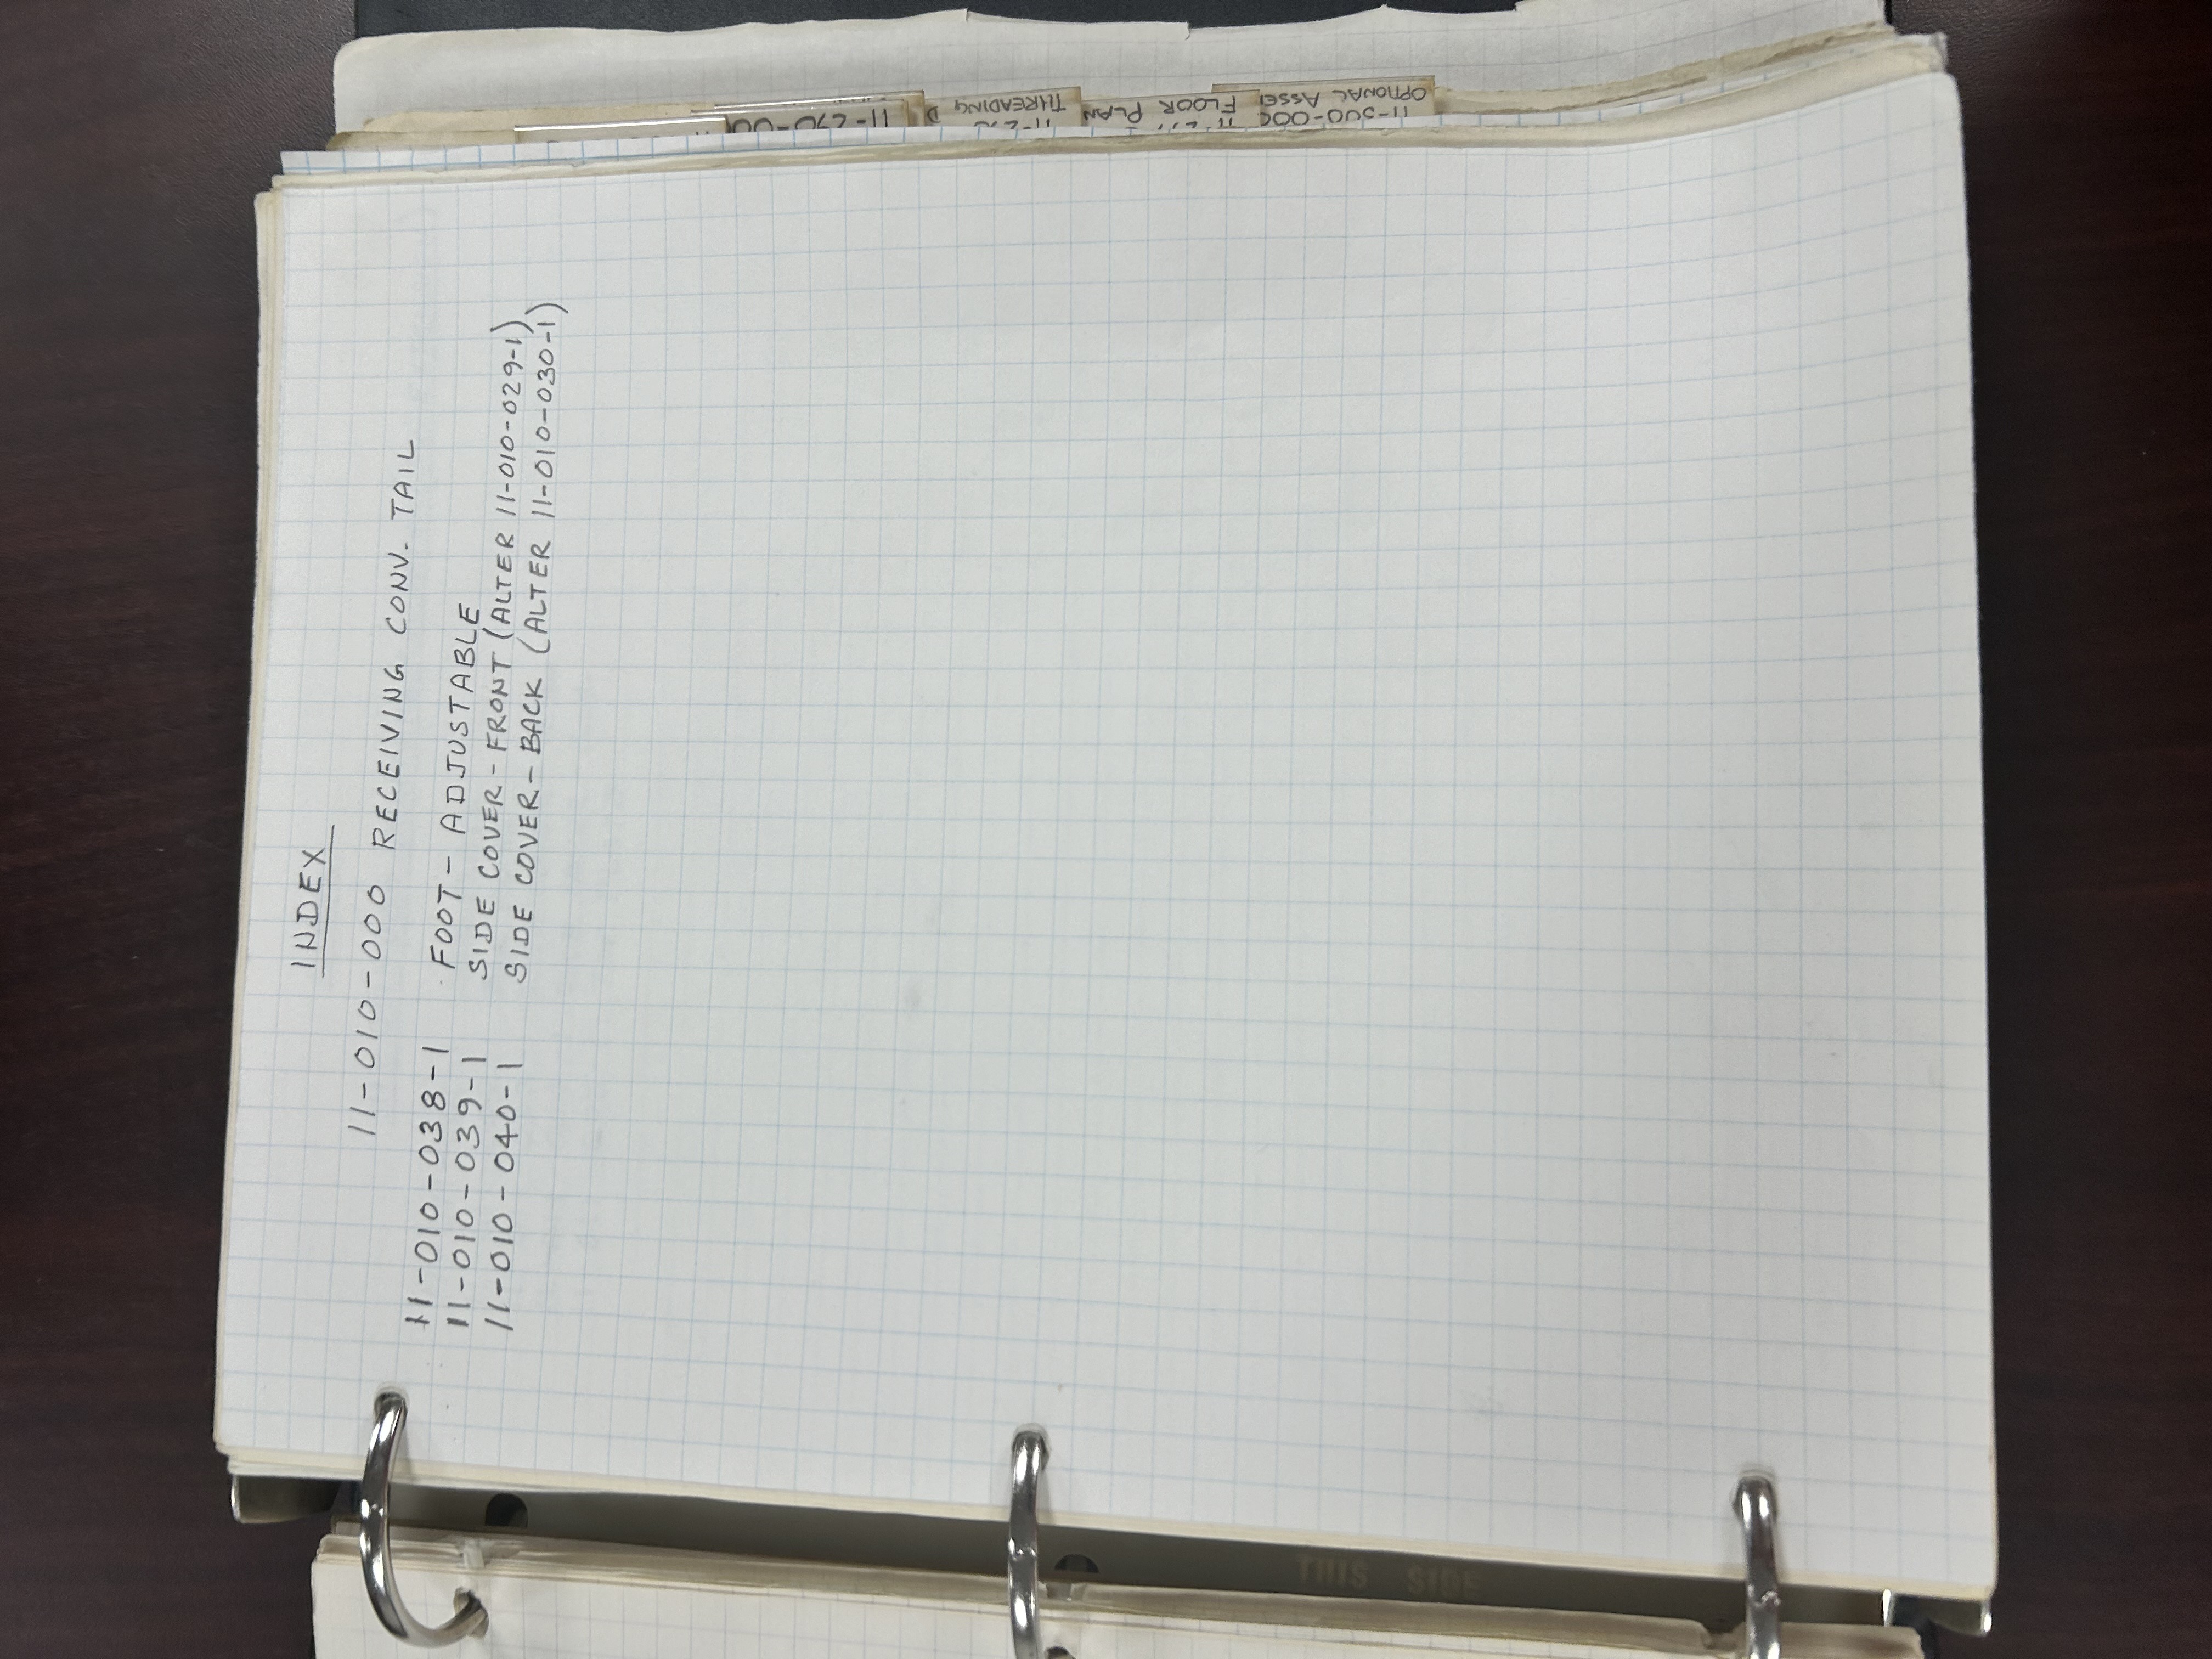 INDEX
11-010-000 RECEIVING CONV. TAIL
11-010-038-1 FOOT - ADJUSTABLE
11-010-039-1 SIDE COVER - FRONT (ALTER 11-010-029-1)
11-010-040-1 SIDE COVER - BACK (ALTER 11-010-030-1)
THREADING
FLOOR PLAN
OPTIONAL
THIS SIDE